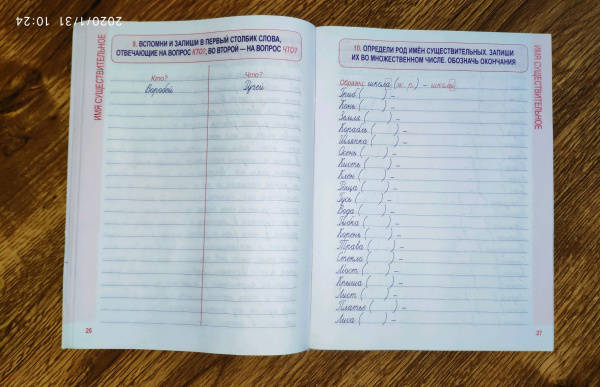 2020/1/31 10:24
ИМЯ СУЩЕСТВИТЕЛЬНОЕ
9. ВСПОМНИ И ЗАПИШИ В ПЕРВЫЙ СТОЛБИК СЛОВА,
ОТВЕЧАЮЩИЕ НА ВОПРОС КТО?, ВО ВТОРОЙ — НА ВОПРОС ЧТО?
Кто? Что?
Воробей Ручей
26
10. ОПРЕДЕЛИ РОД ИМЁН СУЩЕСТВИТЕЛЬНЫХ. ЗАПИШИ
ИХ ВО МНОЖЕСТВЕННОМ ЧИСЛЕ. ОБОЗНАЧЬ ОКОНЧАНИЯ
ИМЯ СУЩЕСТВИТЕЛЬНОЕ
Образец: школа (ж. р.) – школы
Гриб ( ) –
Конь ( ) –
Земля ( ) –
Корабль ( ) –
Шляпка ( ) –
Осень ( ) –
Кисть ( ) –
Клён ( ) –
Гусь ( ) –
Вода ( ) –
Корень ( ) –
Трава ( ) –
Стекло ( ) –
Мост ( ) –
Крыша ( ) –
Лист ( ) –
Платье ( ) –
Лиса ( ) –
27